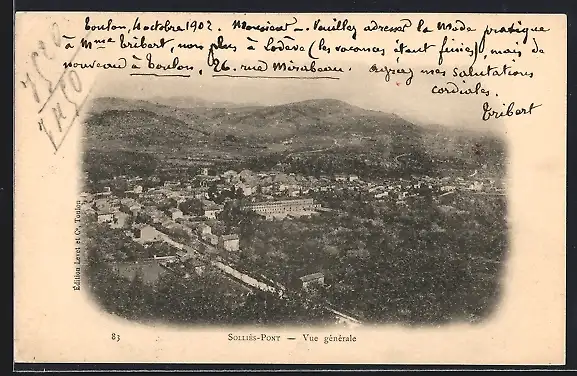 Toulon, 4 octobre 1902. Monsieur — Veuillez adresser la Mode pratique
à Mme Tribert, non plus à Lodève (les vacances étant finies), mais de
nouveau à Toulon, 26, rue Mirabeau. Agréez mes salutations
cordiales.
Tribert
Édition Levet et Cie, Toulon
83
SOLLIÈS-PONT — Vue générale